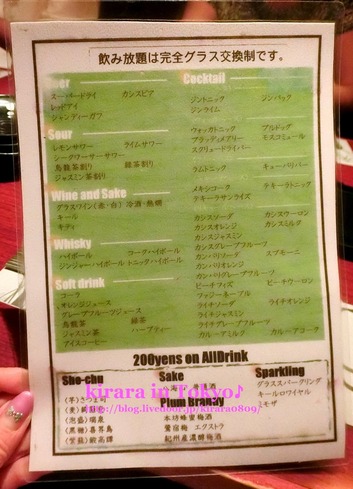 飲み放題は完全グラス交換制です。
スーパードライ カシスビア
レッドアイ
シャンディーガフ
Sour
レモンサワー ライムサワー
シークワーサーサワー
烏龍茶割り 緑茶割り
ジャスミン茶割り
Wine and Sake
グラスワイン(赤・白) 冷酒・熱燗
キール
キティ
Whisky
ハイボール コークハイボール
ジンジャーハイボール トニックハイボール
Soft drink
コーラ
オレンジジュース
グレープフルーツジュース
烏龍茶 緑茶
ジャスミン茶 ハーブティー
アイスコーヒー
Cocktail
ジントニック ジンバック
ジンライム
ウォッカトニック ブルドッグ
ブラッディメアリー モスコミュール
スクリュードライバー
ラムトニック キューバリバー
メキシコーク テキーラトニック
テキーラサンライズ
カシスソーダ カシスウーロン
カシスオレンジ カシスミルク
カシスジャスミン
カシスグレープフルーツ
カンパリソーダ スプモーニ
カンパリオレンジ
カンパリグレープフルーツ
ピーチフィズ ピーチウーロン
ファジーネーブル
ライチソーダ ライチオレンジ
ライチジャスミン
ライチグレープフルーツ
カルーアミルク カルーアコーク
200yens on AllDrink
Sho-chu
(芋)さつま司
(麦)
(泡盛)瑞泉
(黒糖)喜界島
(紫蘇)鍛高譚
Sake
Plum Brandy
本坊蜂蜜梅酒
鶯宿梅 エクストラ
紀州産濃醇梅酒
Sparkling
グラススパークリング
キールロワイヤル
ミモザ
kirara in Tokyo♪
http://blog.livedoor.jp/kirara0809/